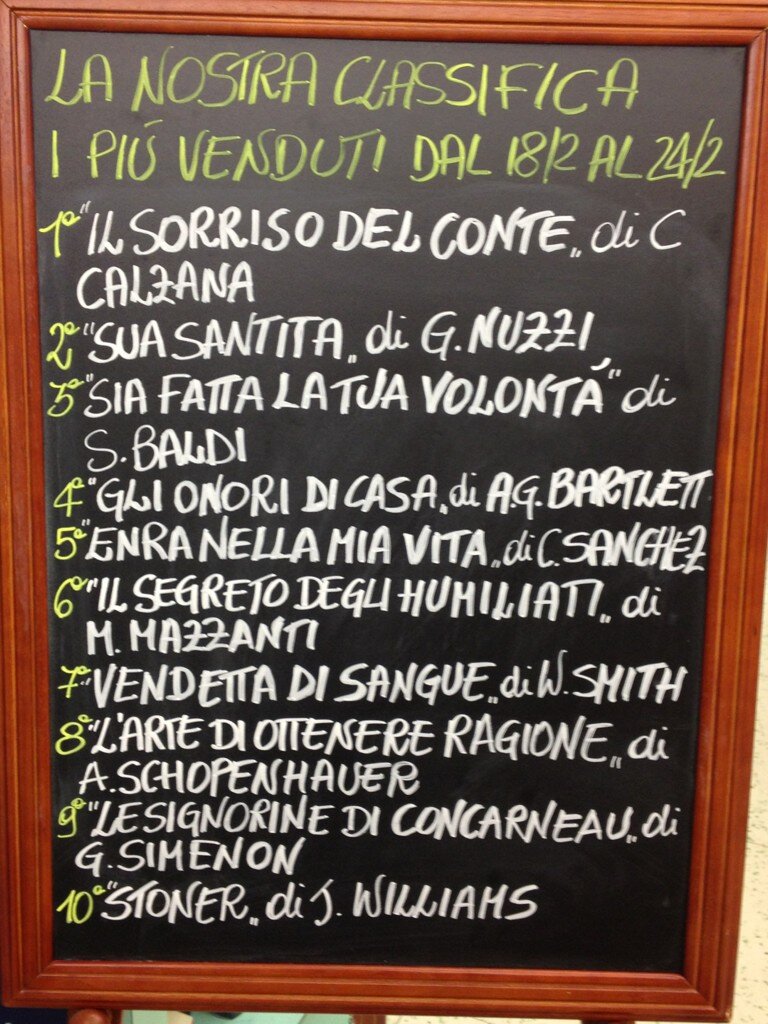 LA NOSTRA CLASSIFICA
I PIÚ VENDUTI DAL 18/2 AL 24/2
1º "IL SORRISO DEL CONTE„ di C
CALZANA
2º "SUA SANTITA„ di G. NUZZI
3º "SIA FATTA LA TUA VOLONTÁ" di
S. BALDI
4º "GLI ONORI DI CASA„ di A.G. BARTLETT
5º "ENRA NELLA MIA VITA„ di C. SANCHEZ
6º "IL SEGRETO DEGLI HUMILIATI„ di
M. MAZZANTI
7º "VENDETTA DI SANGUE„ di W. SMITH
8º "L'ARTE DI OTTENERE RAGIONE„ di
A. SCHOPENHAUER
9º "LE SIGNORINE DI CONCARNEAU„ di
G. SIMENON
10º "STONER„ di J. WILLIAMS